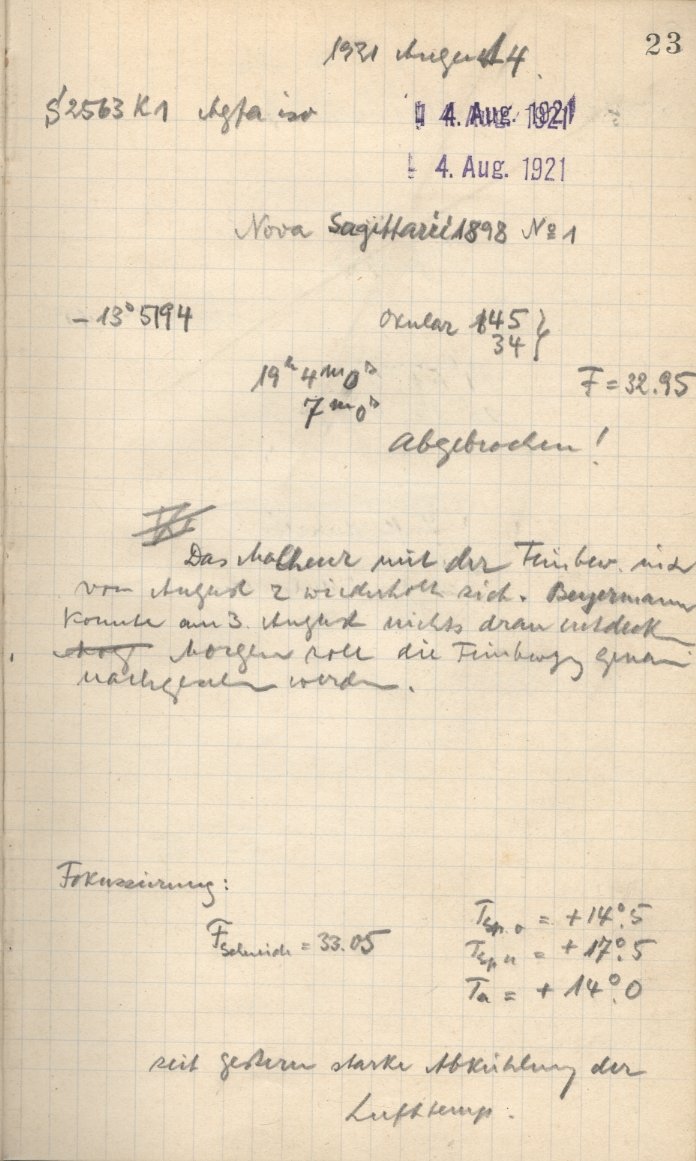 23
1921 August 4.
S 2563 K1 Agfa iso
4. Aug. 1921
4. Aug. 1921
Nova Sagittarii 1898 № 1
– 13° 5194
Okular 145 }
34 }
19ʰ 4ᵐ0ˢ
7ᵐ0ˢ
F = 32.95
Abgebrochen!
Das Malheur mit der Feinbew.
vom August 2 wiederholt sich. Beyermann
konnte am 3. August nichts dran entdecken
Morgen soll die Feinbewg genau
nachgesehen werden.
Fokussierung:
F = 33.05
T Sp. o = + 14°.5
T Sp u = + 17°.5
Ta = + 14°.0
seit gestern starke Abkühlung der
Lufttemp.